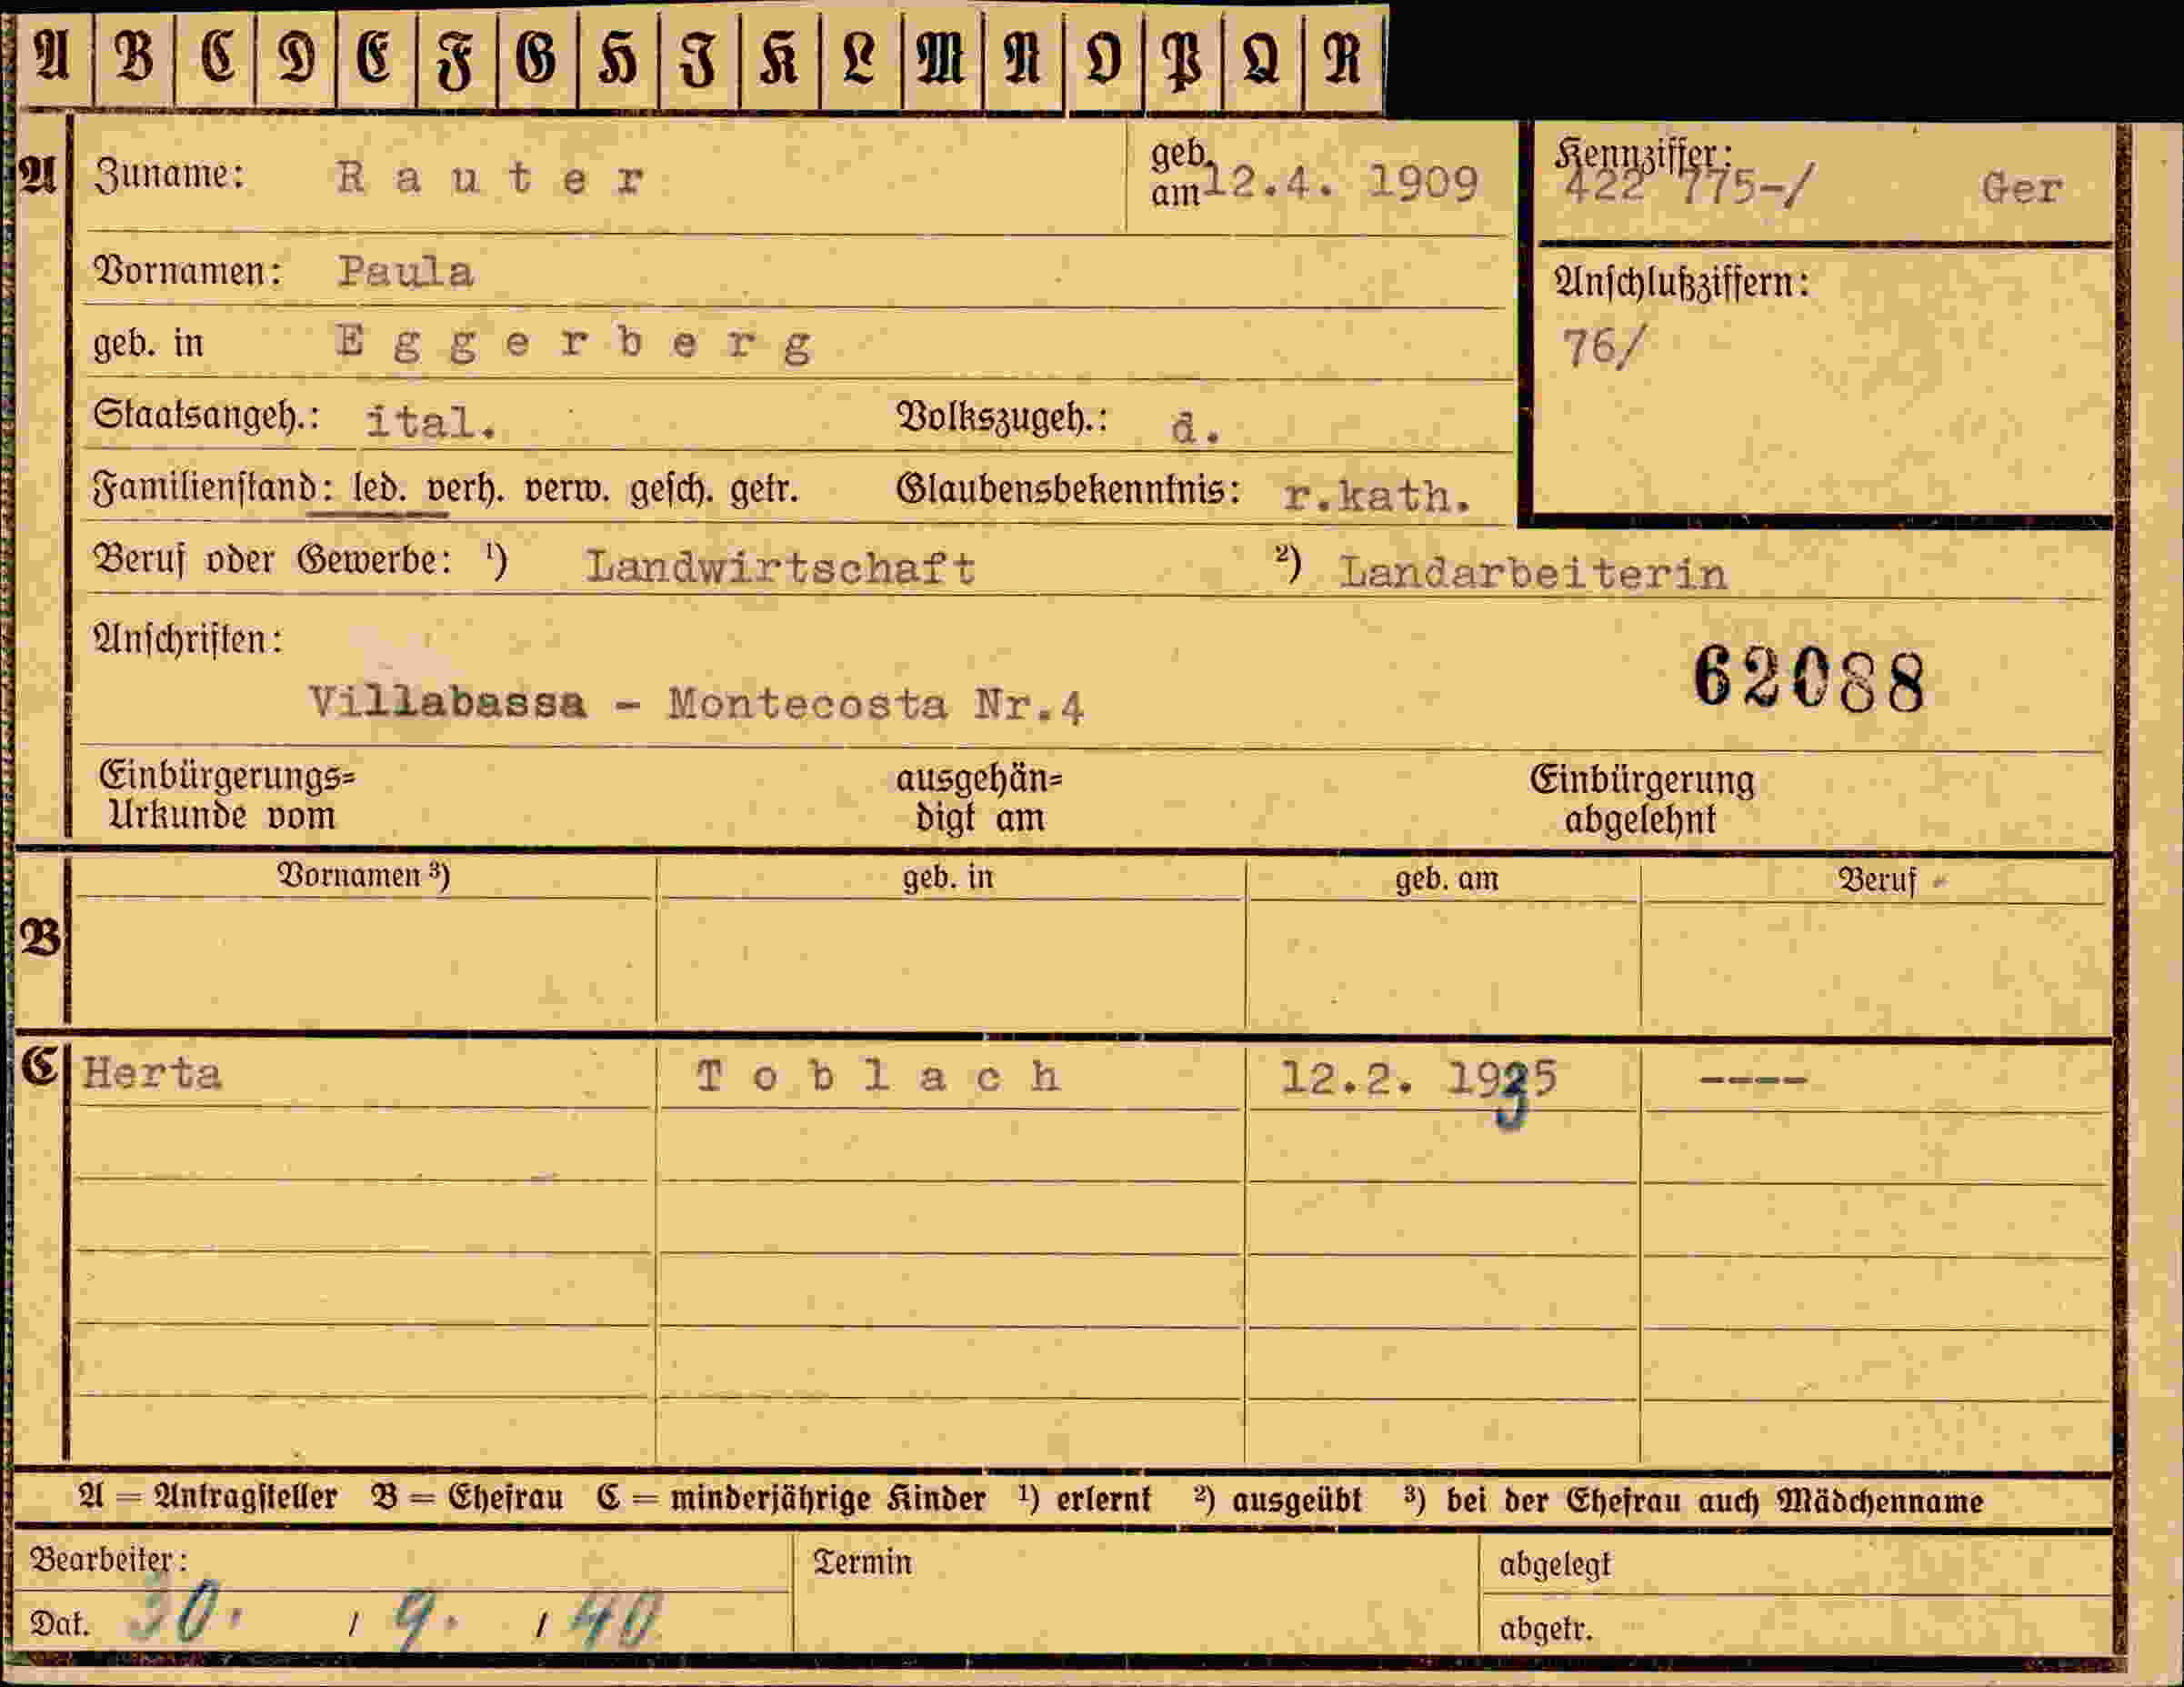 A B C D E F G H I K L M N O P Q R
A Zuname: Rauter geb. am 12.4. 1909 Kennziffer: 422 775-/ Ger
Vornamen: Paula Anschlußziffern:
geb. in Eggerberg 76/
Staatsangeh.: ital. Volkszugeh.: d.
Familienstand: led. verh. verw. gesch. getr. Glaubensbekenntnis: r.kath.
Beruf oder Gewerbe: ¹) Landwirtschaft ²) Landarbeiterin
Anschriften:
62088
Villabassa - Montecosta Nr.4
Einbürgerungs= ausgehän= Einbürgerung
Urkunde vom digt am abgelehnt
Vornamen ³) geb. in geb. am Beruf
B
C Herta Toblach 12.2. 1935 ----
A = Antragsteller B = Ehefrau C = minderjährige Kinder ¹) erlernt ²) ausgeübt ³) bei der Ehefrau auch Mädchenname
Bearbeiter: Termin abgelegt
Dat. 30. / 9. / 40 abgetr.